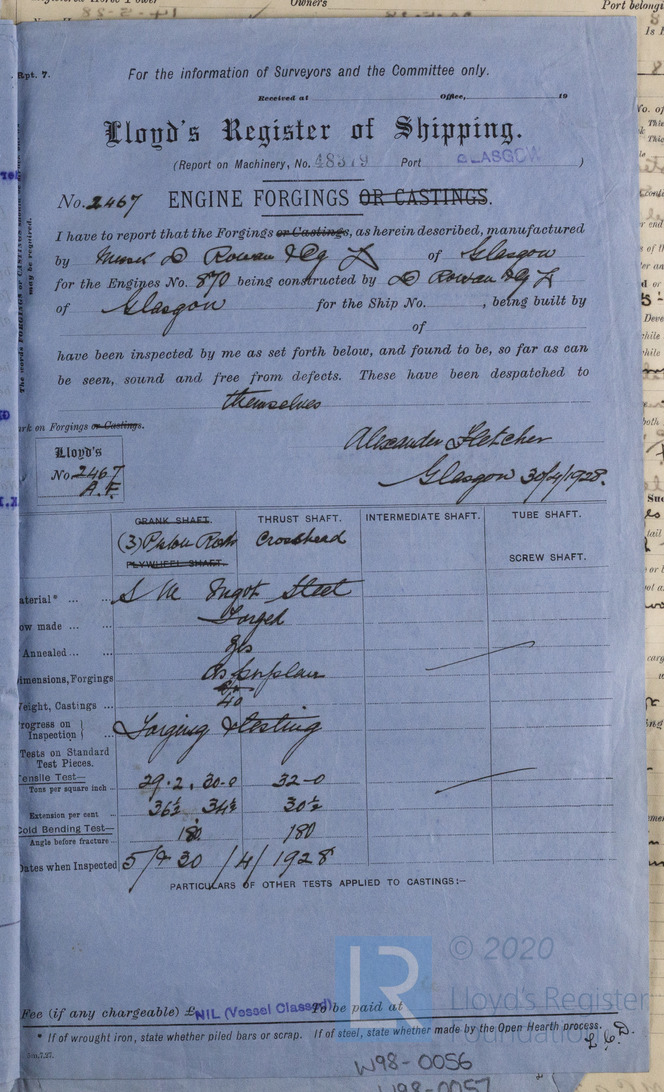 Owners
Port belongi
Rpt. 7.
For the information of Surveyors and the Committee only.
Received at Office, 19
Lloyd's Register of Shipping.
(Report on Machinery, No. 48379 Port GLASGOW )
No. 2467 ENGINE FORGINGS OR CASTINGS.
I have to report that the Forgings or Castings, as herein described, manufactured
by Messrs D Rowan & Co Ld of Glasgow
for the Engines No. 870 being constructed by D Rowan & Co Ld
of Glasgow for the Ship No. , being built by
of
have been inspected by me as set forth below, and found to be, so far as can
be seen, sound and free from defects. These have been despatched to
themselves
The words FORGINGS or CASTINGS
may be required.
rk on Forgings or Castings.
Alexander Fletcher
Glasgow 30/4/1928.
Lloyd's
No 2467
A.F.
CRANK SHAFT. THRUST SHAFT. INTERMEDIATE SHAFT. TUBE SHAFT.
(3) Piston Rods Crosshead
FLYWHEEL SHAFT. SCREW SHAFT.
aterial* S M Ingot Steel
ow made Forged
Annealed yes
imensions, Forgings as per plan
eight, Castings 40
rogress on Inspection Forging & testing
Tests on Standard
Test Pieces.
ensile Test—
Tons per square inch 29·2, 30·0 32-0
Extension per cent 36½ 34½ 30½
old Bending Test—
Angle before fracture 180 180
Dates when Inspected 5/ & 30 /4/1928
PARTICULARS OF OTHER TESTS APPLIED TO CASTINGS:—
© 2020
Lloyd's Register
Foundation
LR
Fee (if any chargeable) £ NIL (Vessel Classed) To be paid at
* If of wrought iron, state whether piled bars or scrap. If of steel, state whether made by the Open Hearth process.
L.C.D.
W98-0056
W98-0057